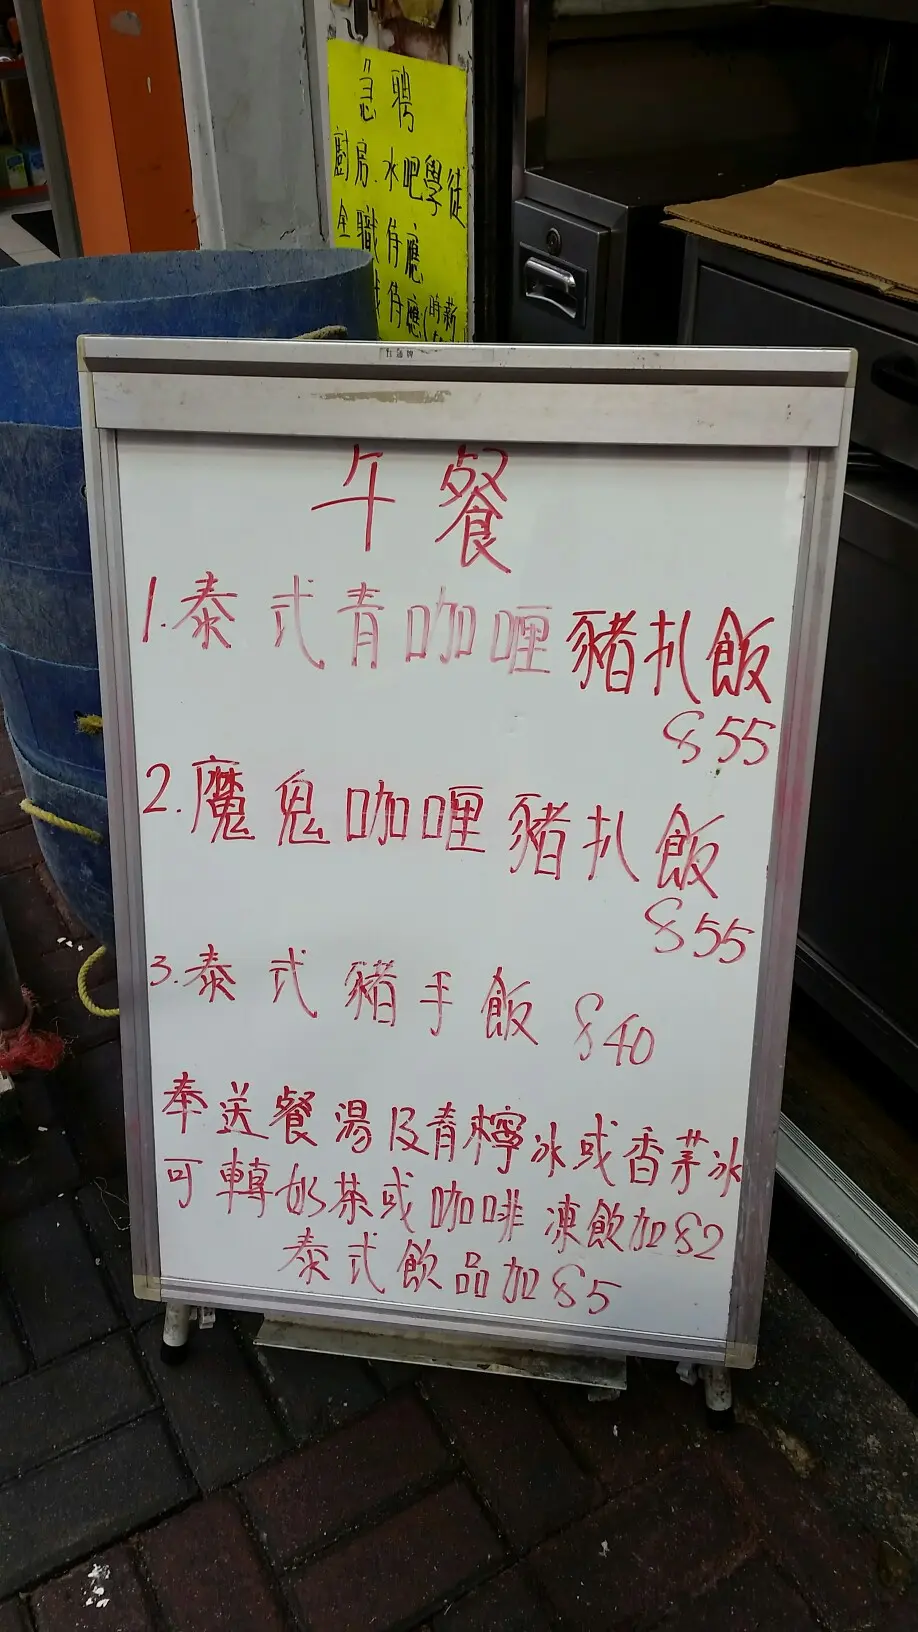 急聘
廚房.水吧學徒
全職侍應
侍應(時薪
午餐
1.泰式青咖喱豬扒飯
$55
2.魔鬼咖喱豬扒飯
$55
3.泰式豬手飯 $40
奉送餐湯及青檸冰或香茅冰
可轉奶茶或咖啡 凍飲加$2
泰式飲品加$5